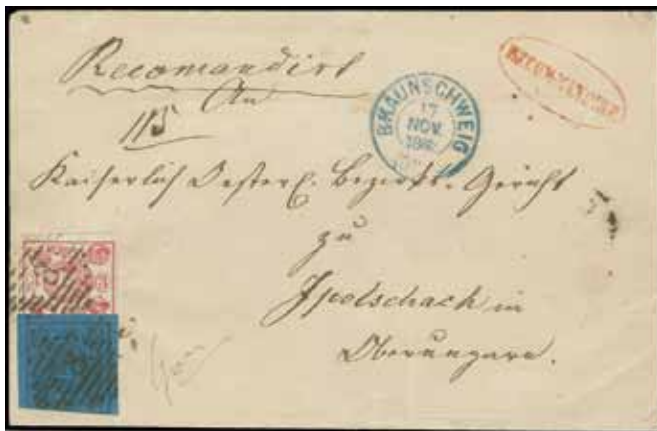 Recomandirt
An
115
BRAUNSCHWEIG
17
NOV.
Kaiserlich Oesterr. Bezirks-Gericht
zu
in
Oberungarn.